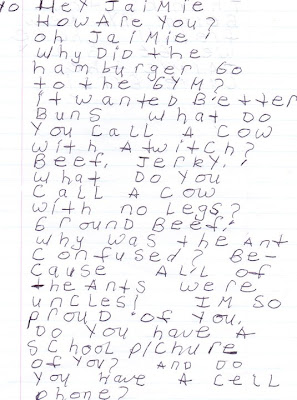 yo Hey Jaimie
How Are You?
Oh Jaimie!
Why Did the
hamburger Go
to the GYM?
it wanted Better
Buns What Do
You Call A Cow
with A twitch?
Beef. Jerky!
What Do You
Call A Cow
with no Legs?
Ground Beef!
Why was the Ant
Confused? Be-
Cause All of
the Ants were
uncles! IM SO
proud of You.
Do You have A
School pichure
of You? AND DO
You Have A Cell
phone?